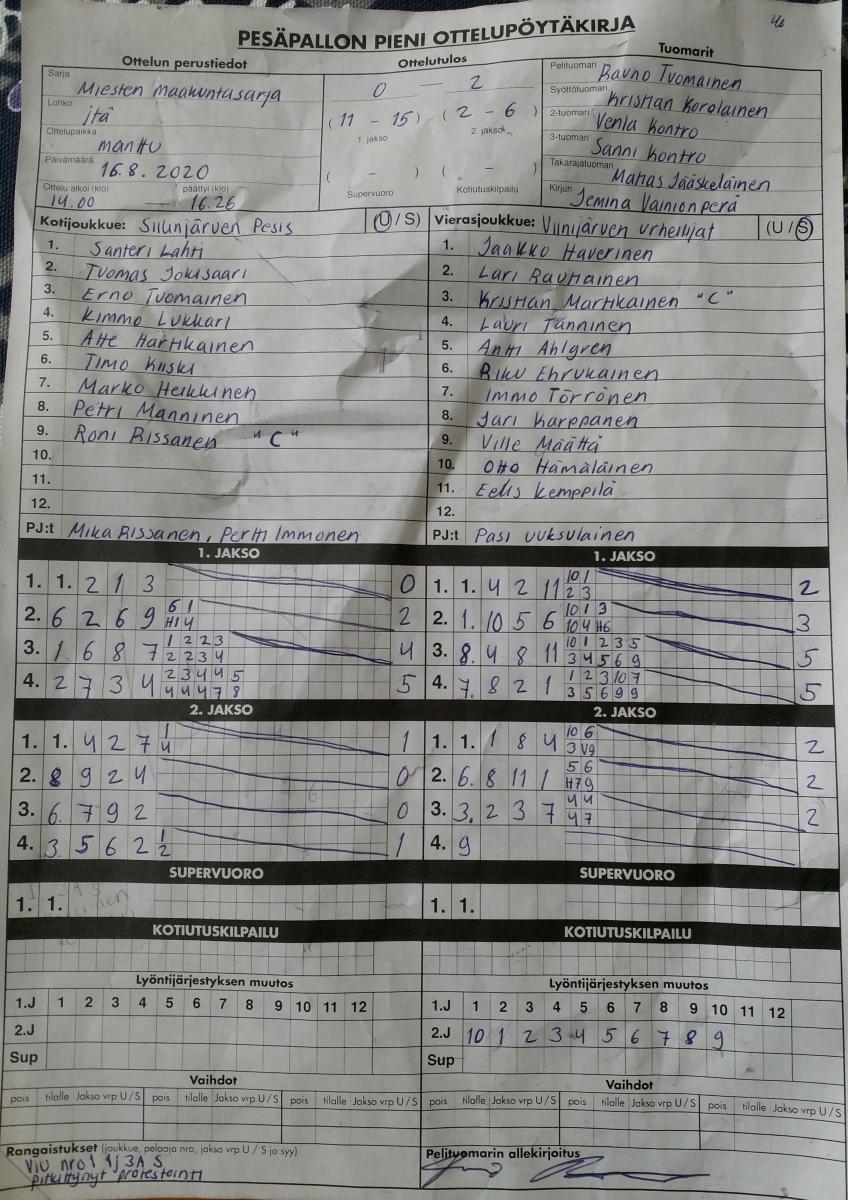 46
PESÄPALLON PIENI OTTELUPÖYTÄKIRJA
Ottelun perustiedot
Sarja
Miesten maakuntasarja
Lohko
itä
Ottelupaikka
manttu
Päivämäärä
16.8.2020
Ottelu alkoi (klo) päättyi (klo)
14.00 — 16.26
Ottelutulos
0 2
(11 - 15) (2 - 6)
1. jakso 2. jakso
( - ) ( - )
Supervuoro Kotiutuskilpailu
Tuomarit
Pelituomari Rauno Tuomainen
Syöttötuomari Kristian Korolainen
2-tuomari Venla Kontro
3-tuomari Sanni Kontro
Takarajatuomari Matias Jääskeläinen
Kirjuri Jemina Vainionperä
Kotijoukkue: Siilinjärven Pesis (U / S)
1. Santeri Lahti
2. Tuomas Jokisaari
3. Erno Tuomainen
4. Kimmo Lukkari
5. Atte Hartikainen
6. Timo Kiiski
7. Marko Heikkinen
8. Petri Manninen
9. Roni Rissanen "C"
10.
11.
12.
PJ:t Mika Rissanen, Pertti Immonen
Vierasjoukkue: Viinijärven urheilijat (U / S)
1. Jaakko Haverinen
2. Lari Rautiainen
3. Kristian Martikainen "C"
4. Lauri Tanninen
5. Antti Ahlgren
6. Riku Ehrukainen
7. Immo Törrönen
8. Jari Karppanen
9. Ville Määttä
10. Otto Hämäläinen
11. Eelis Kemppilä
12.
PJ:t Pasi uuksulainen
1. JAKSO
1. 1. 2 1 3 0
2. 6 2 6 9 6 1 2
H1 4
3. 1 6 8 7 1 2 2 3 4
2 2 3 4
4. 2 7 3 4 2 3 4 4 5 5
4 4 4 7 8
2. JAKSO
1. 1. 4 2 7 1 1
4
2. 8 9 2 4 0
3. 6. 7 9 2 0
4. 3. 5 6 2 1 1
2
SUPERVUORO
1. 1.
KOTIUTUSKILPAILU
1. JAKSO
1. 1. 4 2 11 10 1 2
2 3
2. 1. 10 5 6 10 1 3 3
10 4 H6
3. 8. 4 8 11 10 1 2 3 5 5
3 4 5 6 9
4. 7. 8 2 1 1 2 3 10 7 5
3 5 6 9 9
2. JAKSO
1. 1. 1 8 4 10 6 2
3 V9
2. 6. 8 11 1 5 6 2
H7 9
3. 3. 2 3 7 4 4 2
4 7
4. 9
SUPERVUORO
1. 1.
KOTIUTUSKILPAILU
Lyöntijärjestyksen muutos
1.J 1 2 3 4 5 6 7 8 9 10 11 12
2.J
Sup
Vaihdot
pois tilalle Jakso vrp U / S pois tilalle Jakso vrp U / S pois tilalle Jakso vrp U / S
Lyöntijärjestyksen muutos
1.J 1 2 3 4 5 6 7 8 9 10 11 12
2.J 10 1 2 3 4 5 6 7 8 9
Sup
Vaihdot
pois tilalle Jakso vrp U / S pois tilalle Jakso vrp U / S pois tilalle Jakso vrp U / S
Rangaistukset (joukkue, pelaaja nro, jakso vrp U / S ja syy)
ViU nro1 1j 3A S
pitkittynyt protestointi
Pelituomarin allekirjoitus